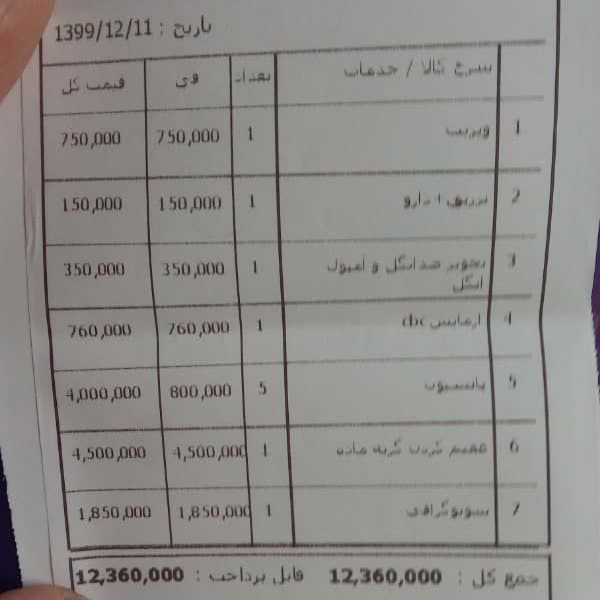 تاریخ : 1399/12/11
شرح کالا / خدمات تعداد فی قیمت کل
1 ویزیت 1 750,000 750,000
2 تزریق + دارو 1 150,000 150,000
3 تجویز ضد انگل و آمپول 1 350,000 350,000
انگل
4 آزمایش cbc 1 760,000 760,000
5 پانسیون 5 800,000 4,000,000
6 عقیم کردن گربه ماده 1 4,500,000 4,500,000
7 سونوگرافی 1 1,850,000 1,850,000
جمع کل : 12,360,000 قابل پرداخت : 12,360,000